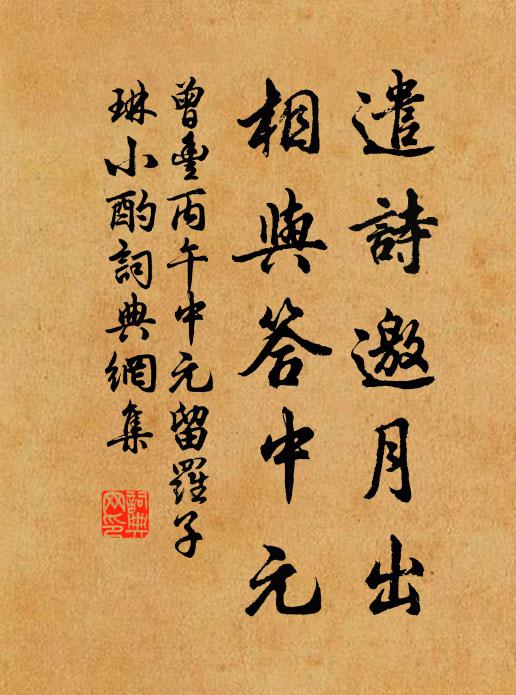 遣詩邀月出
相與答中元
曾豐丙午中元留羅子
琳小酌詞典網集
詞典
网印